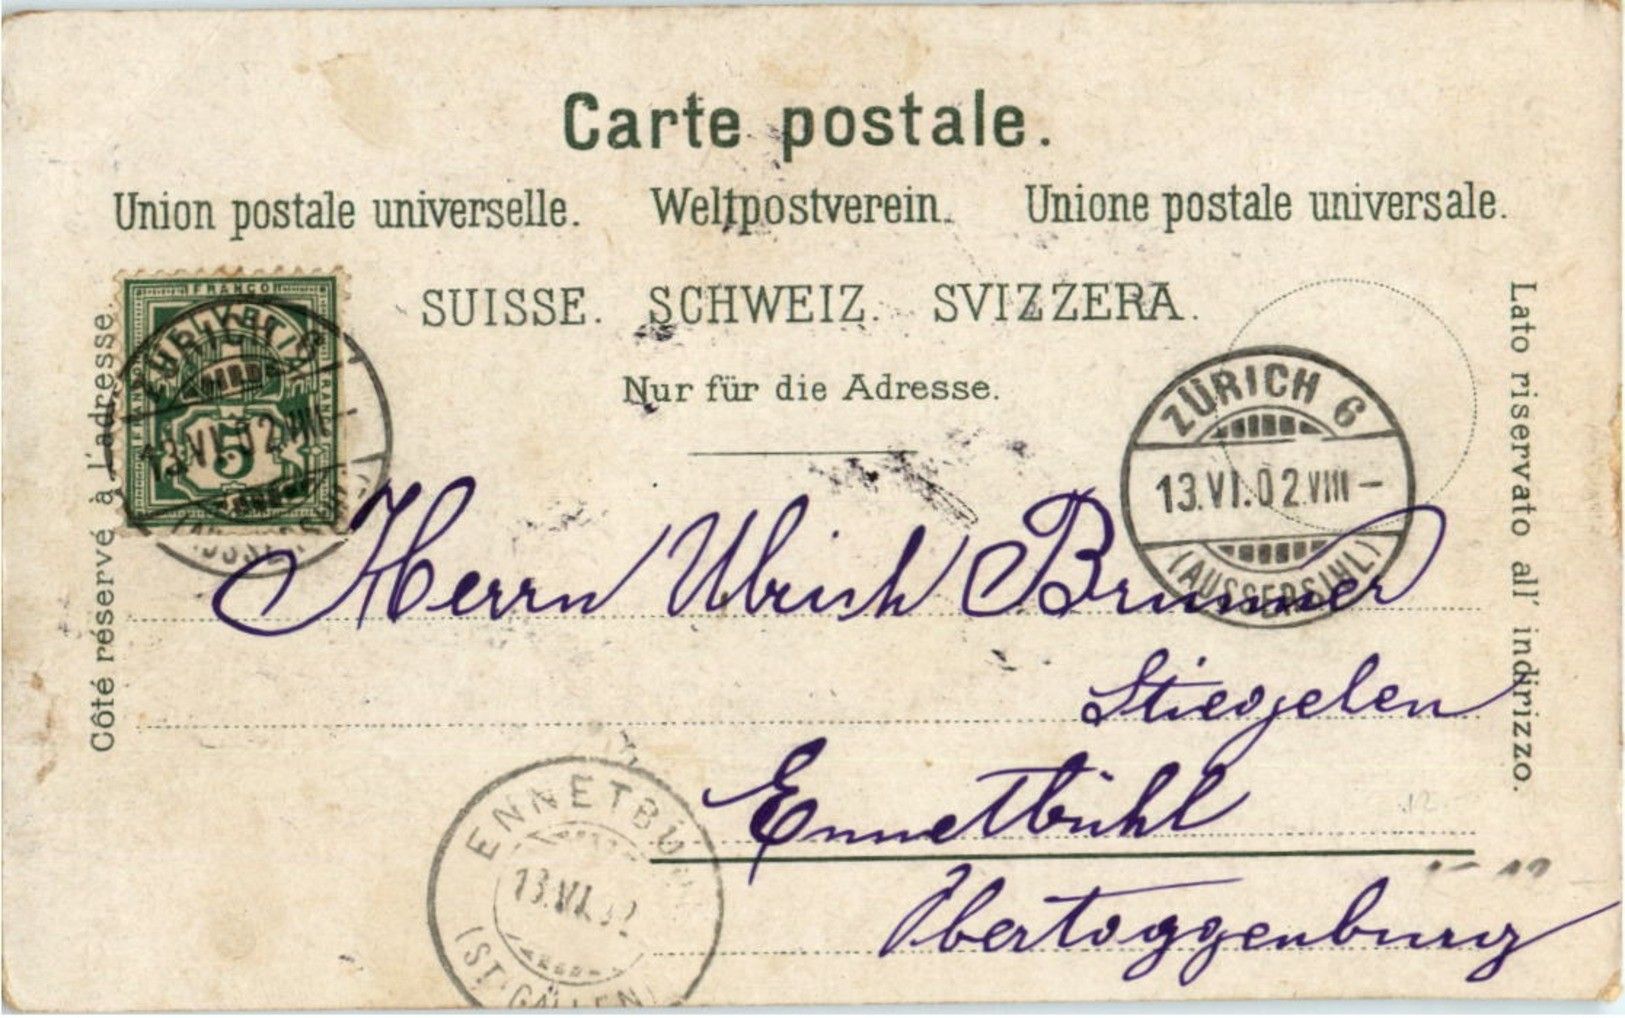 Carte postale.
Union postale universelle. Weltpostverein. Unione postale universale.
SUISSE. SCHWEIZ. SVIZZERA.
Nur für die Adresse.
Côté réservé à l'adresse.
Lato riservato all' indirizzo.
FRANCO
5
ZÜRICH 6
13.VI.02.VIII –
(AUSSERSIHL)
ZÜRICH 6
13.VI.02.VIII –
(AUSSERSIHL)
Herrn Ulrich Brunner
Stiegelen
Ennetbühl
Obertoggenburg
ENNETBÜHL
13.VI.02
(ST. GALLEN)